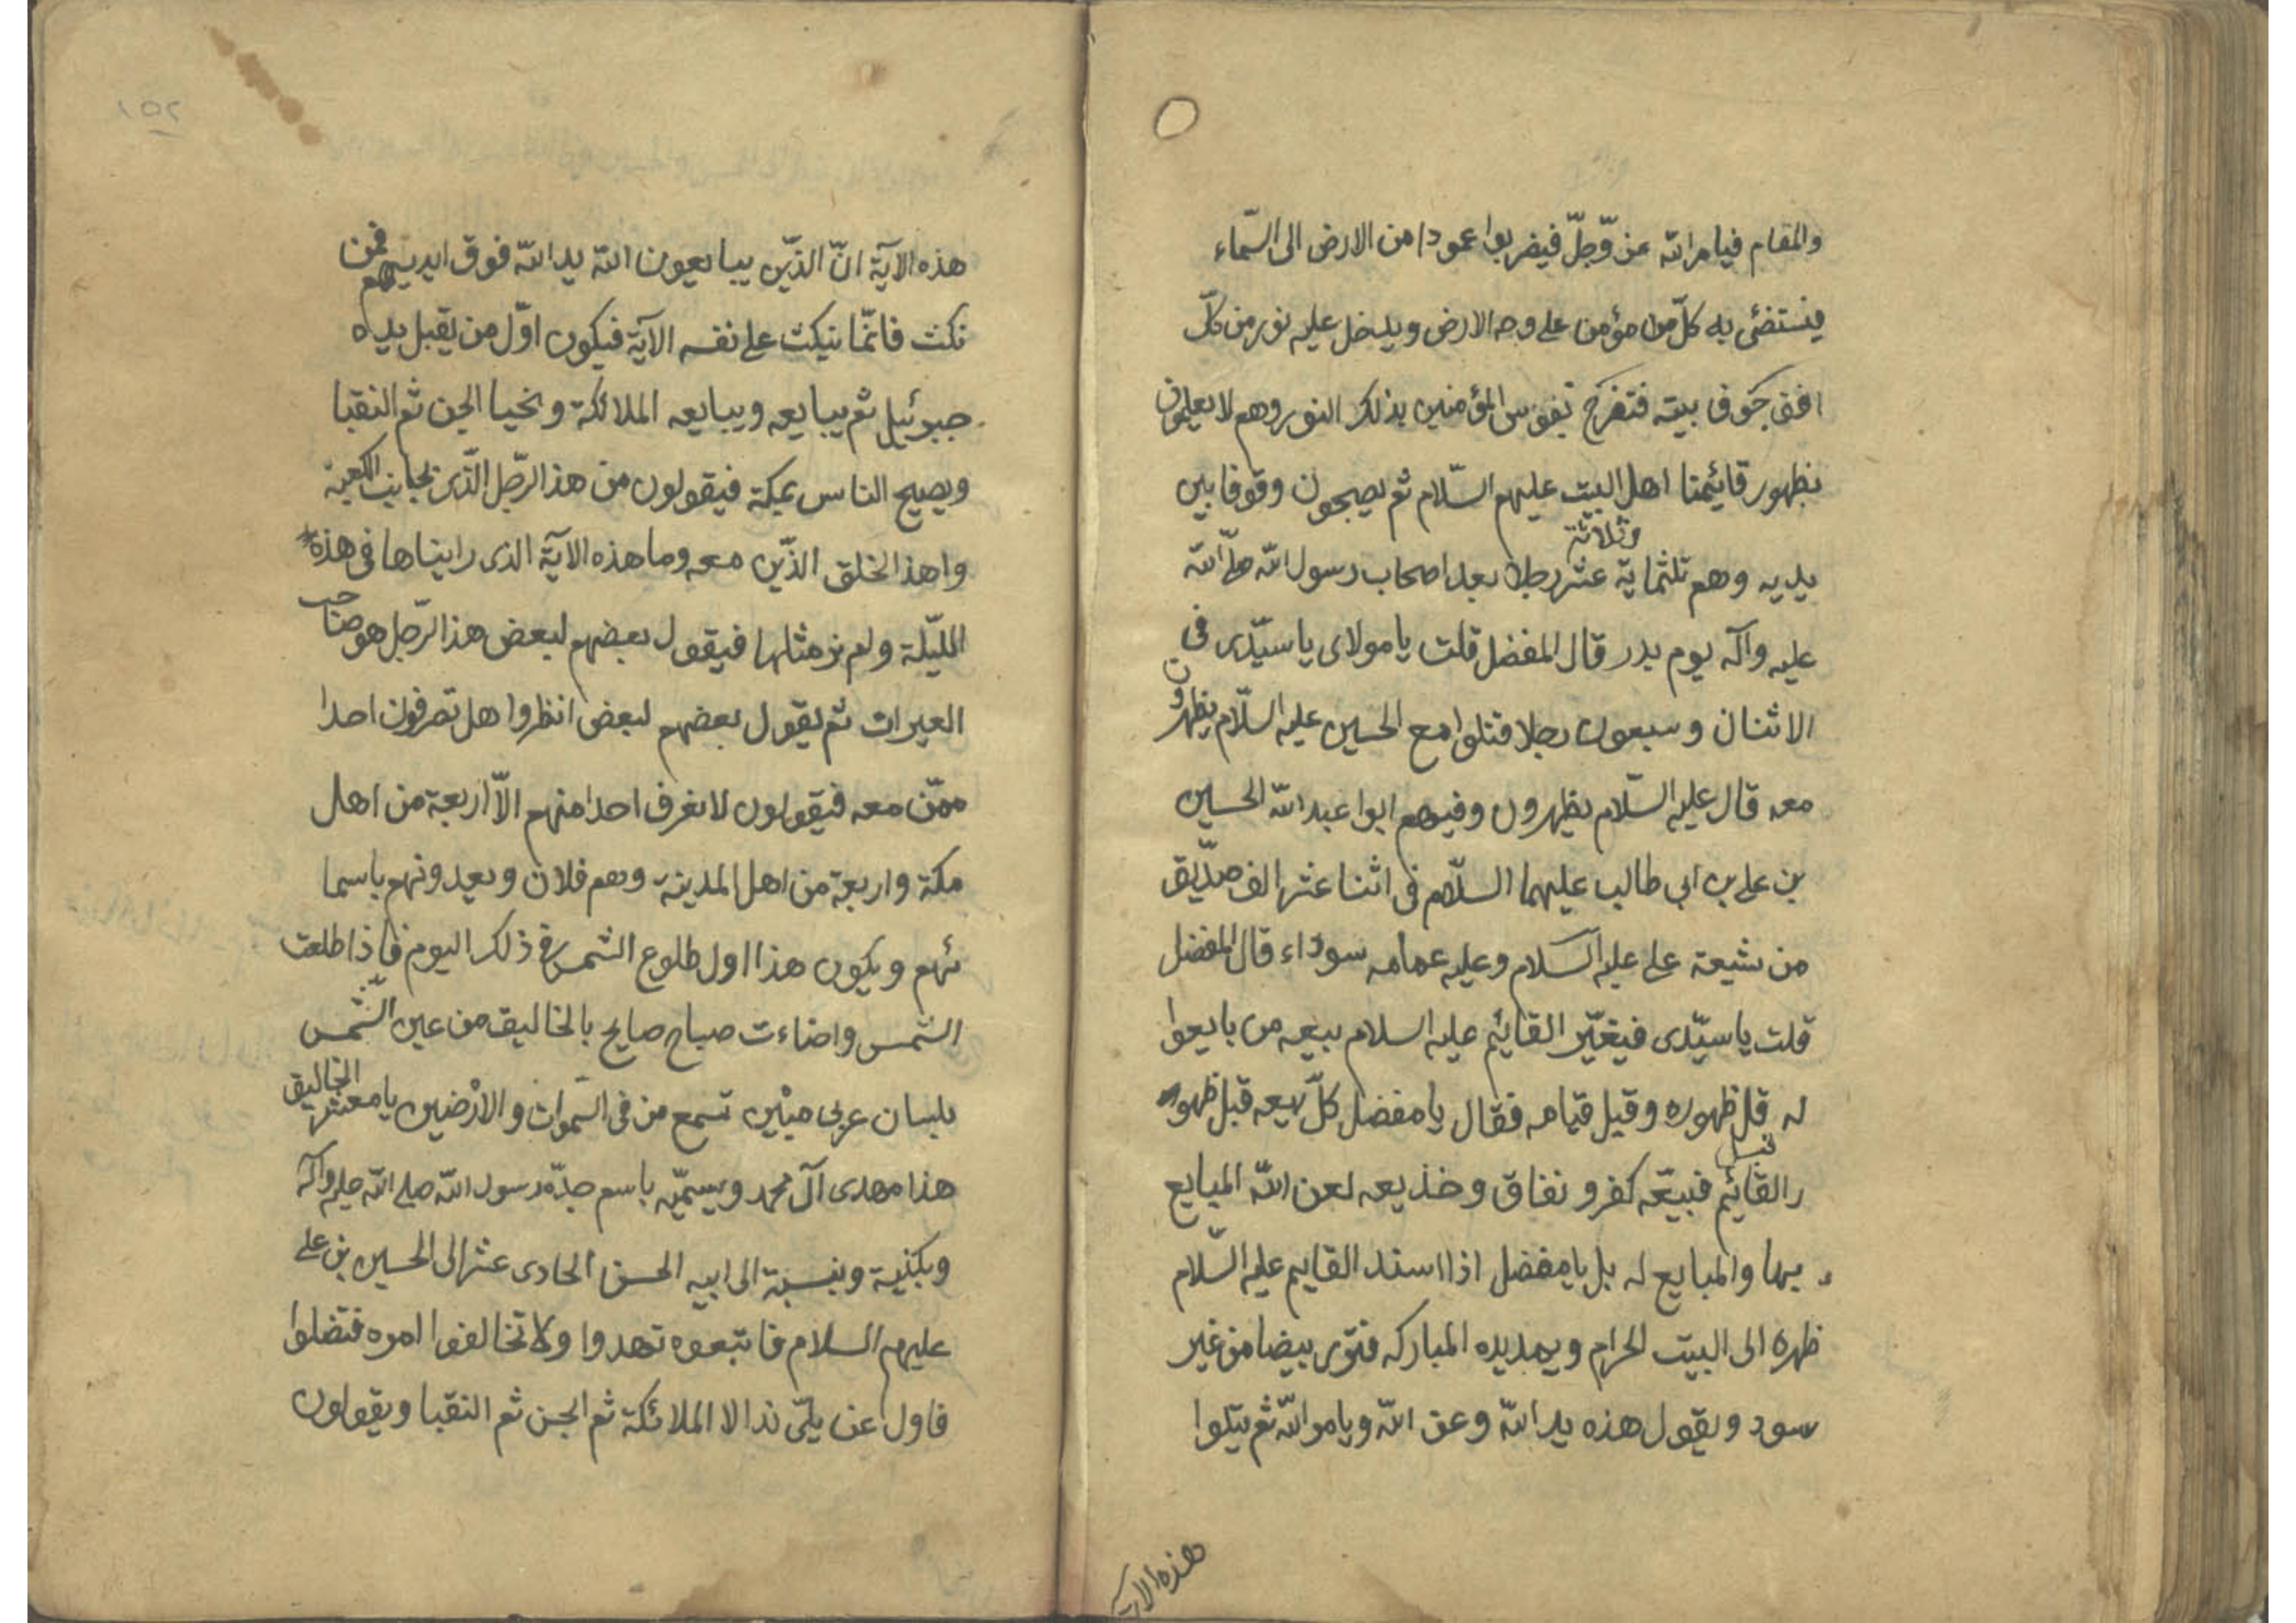 والمقام فيامر الله عزّ وّجلّ فيضربوا عمودا من الارض الى السّماء
فيستضئ به كلّ من مؤمن على وجه الارض ويدخل عليه نور من كلّ
افق جوف بيته فتفرح نفوس المؤمنين بذلك النور وهم لا يعلمون
بظهور قائيمنا اهل البيت عليهم السّلام ثم يصبحون وقوفا بين
يديه وهم ثلثماية وثلاثة عشر رجلا بعدا صحاب رسول الله صلّى الله
عليه وآله يوم بدر قال المفضل قلت يا مولاى يا سيّدى فى
الاثنان وسبعون رجلا قتلوا مع الحسين عليه السّلام يظهرون
معه قال عليه السّلام يظهرون وفيهم ابوا عبد الله الحسين
بن على بن ابى طالب عليهما السلّام فى اثنا عشر الف صدّيق
من شيعة على عليه السلام وعليه عمامه سوداء قال المفضل
قلت يا سيّدى فيغيّر القائيم عليه السلام بيعه من بايعوا
له قبل ظهوره وقبل قيامه فقال يا مفضل كلّ بيعه قبل ظهور
القائيم فبيعّه كفر ونفاق وخذيعه لعن الله المبايع
بها والمبايع له بل يا مفضل اذا اسند القايم عليه السّلام
ظهره الى البيت الحرام ويمد يده المباركه فترى بيضا من غير
سود ويقول هذه يد الله وعن الله ويامر الله ثم يتلوا
هذه الاية
١٥٢
هذه الآية انّ الذّين يبايعون الله يد الله فوق ايديهم فمن
نكث فانّما ينكث على نفسه الآية فيكون اوّل من يقبل يده
جبرئيل ثم يبايعه ويبايعه الملائكة ونخبا الجن ثم النقبا
ويصيح الناس بمكة فيقولون من هذا الرّجل الّذى بجانب الكعبة
واهذا الخلق الذّين معه وما هذه الآية الذى رايناها فى هذه
الليّلة ولم نر مثلها فيقول بعضهم لبعض هذا الرّجل هو صاحب
العيرات ثم يقول بعضهم لبعض انظروا هل تعرفون احدا
ممّن معه فيقولون لا نعرف احدا منهم الاّ اربعة من اهل
مكة واربعة من اهل المدينة وهم فلان ويعدونهم باسما
ئهم ويكون هذا اول طلوع الشمس فى ذلك اليوم فاذا طلعت
الشمس واضاءت صباح صايح بالخاليق من عين الشّمس
بلسان عربى مبين تسمع من فى السّموات والارضين يا معشر الخاليق
هذا مهدى آل محمد ويسمّيه باسم جدّه رسول الله صلى الله عليه وآله
ويكنية وينسبة الى ابيه الحسن الحادى عشر الى الحسين بن على
عليهم السلام فاتبعوه تهدوا ولا تخالفوا امره فتضلوا
فاول عن يلبّى ندالا الملائكة ثم الجن ثم النقبا ويقولون